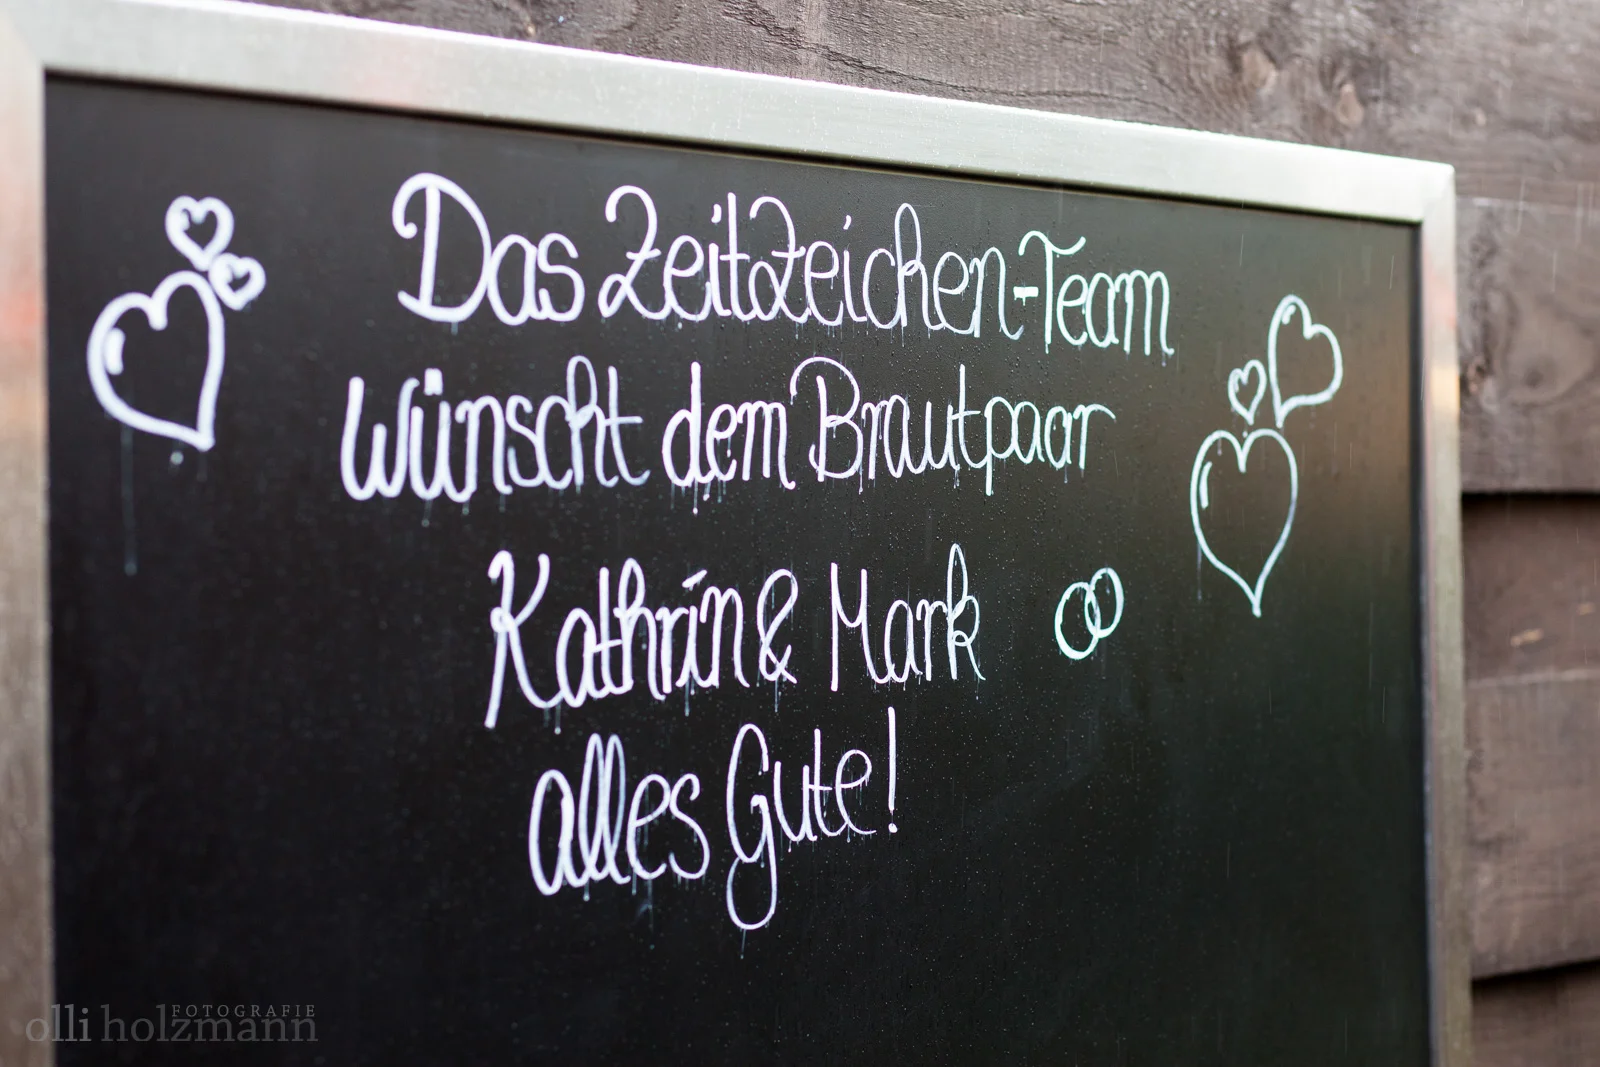 Das ZeitZeichen-Team
wünscht dem Brautpaar
Kathrin & Mark
alles Gute!
olli holzmann FOTOGRAFIE